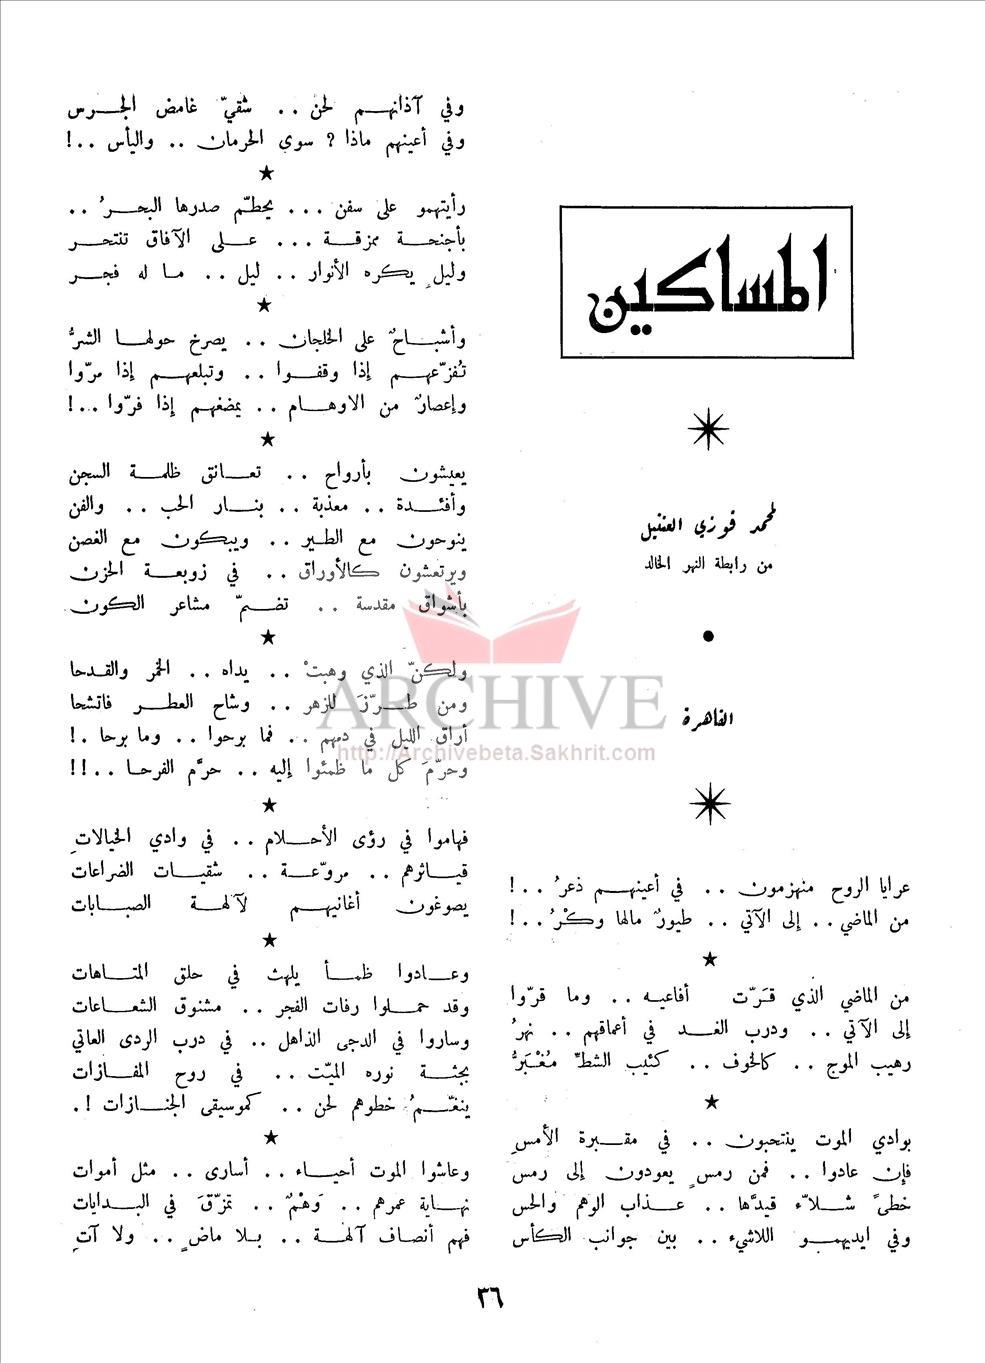 المساكين
لمحمد فوزي العنتيل
من رابطة النهر الخالد
القاهرة
عرايا الروح منهزمون .. في أعينهم ذعرُ ..!
من الماضي .. إلى الآتي .. طيورٌ مالها وكْرُ ..!
★
من الماضي الذي قَرّت أفاعيه .. وما قرّوا
إلى الآتي .. ودرب الغد في أعماقهم .. نهرُ
رهيب الموج .. كالخوف .. كئيب الشطِّ مُغْبَرُّ
★
بوادي الموت ينتحبون .. في مقبرة الأمسِ
فإن عادوا .. فمن رمسٍ يعودون إلى رمس
خطىً شلاّء قيدَّها .. عذاب الوهم والحس
وفي ايديهمو اللاشيء .. بين جوانب الكأس
وفي آذانهم لحن .. شقيّ غامض الجرس
وفي أعينهم ماذا ? سوى الحرمان .. واليأس ..!
★
رأيتهمو على سفن ... يحطّم صدرها البحرُ ..
بأجنحة ممزقة ... على الآفاق تنتحر
وليلٍ يكره الأنوار .. ليل .. ما له فجر
★
وأشباحٌ على الخلجان .. يصرخ حولها الشرُّ
تُفزّعهم إذا وقفوا .. وتبلعهم إذا مرّوا
وإعصارٌ من الاوهام .. يمضغهم إذا فرّوا ..!
★
يعيشون بأرواح .. تعانق ظلمة السجن
وأفئدة .. معذبة .. بنار الحب .. والفن
ينوحون مع الطير .. ويبكون مع الغصن
ويرتعشون كالأوراق .. في زوبعة الحزن
بأشواق مقدسة .. تضمّ مشاعر الكون
★
ولكنّ الذي وهبتْ .. يداه .. الخمر والقدحا
ومن طرّزَ للزهر .. وشاح العطر فاتشحا
أراق الليل في دمهم .. فما برحوا .. وما برحا .!
وحرّمَ كل ما ظمئوا إليه .. حرَّم الفرحا ..!!
★
فهاموا في رؤى الأحلام .. في وادي الخيالاتِ
قياثرهم .. مروّعة .. شقيات الضراعات
يصوغون أغانيهم لآلهة الصبابات
★
وعادوا ظمأ يلهث في حلق المتاهات
وقد حملوا رفات الفجر .. مشنوق الشعاعات
وساروا في الدجى الذاهل .. في درب الردى العاتي
بجثة نوره الميّت .. في روح المفازات
ينغّمُ خطوهم لحن .. كموسيقى الجنازات !.
★
وعاشوا الموت أحياء .. أسارى .. مثل أموات
نهاية عمرهم .. وَهْمٌ .. تمزّقَ في البدايات
فهم أنصاف آلهة .. بلا ماضٍ .. ولا آتِ
٣٦
ARCHIVE
http://Archivebeta.Sakhrit.com